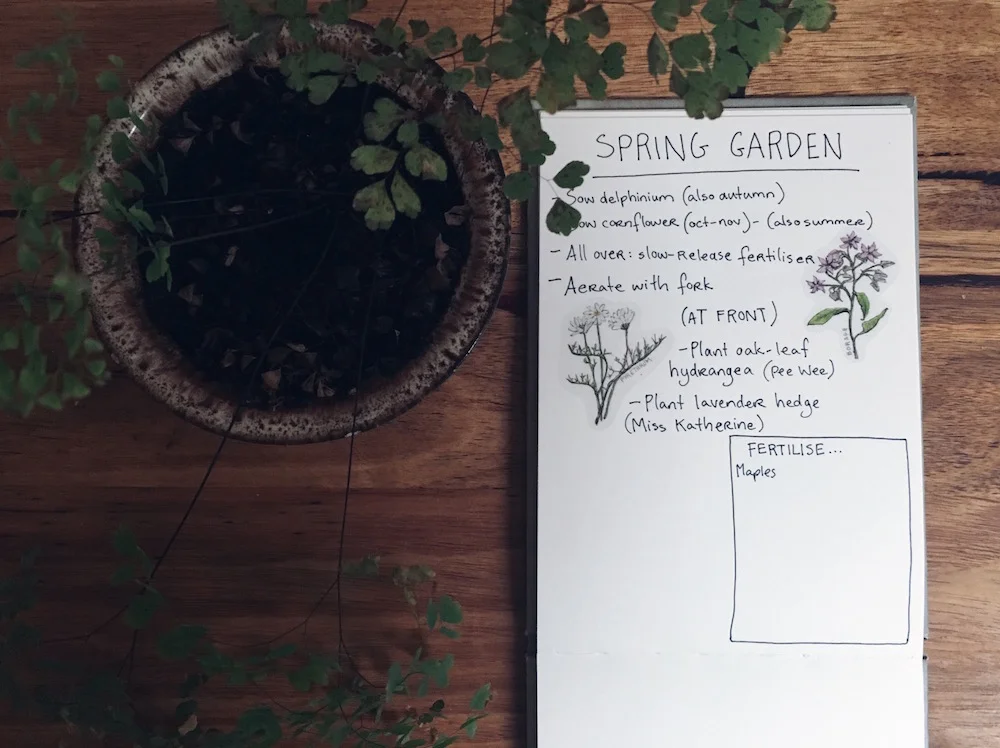 SPRING GARDEN
- Sow delphinium (also autumn)
Sow cornflower (oct-nov) - (also summer)
- All over: slow-release fertiliser
- Aerate with fork
(AT FRONT)
- Plant oak-leaf
hydrangea (Pee Wee)
- Plant lavender hedge
(Miss Katherine)
FERTILISE...
Maples
BORAGE